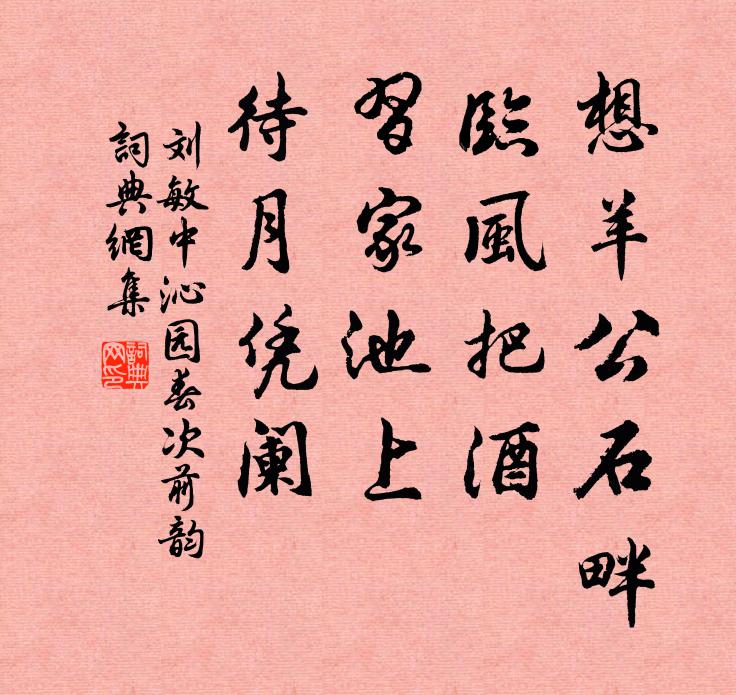 想羊公石畔
臨風把酒
習家池上
待月凭阑
刘敏中沁园春次前韵
詞典網集
詞典网印